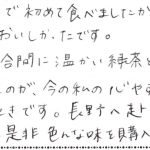 で初めて食べましたが
おいしかったです。
合間に温かい緑茶と
のが、今の私の心やす
ときです。長野へ赴
是非色んな味を購入